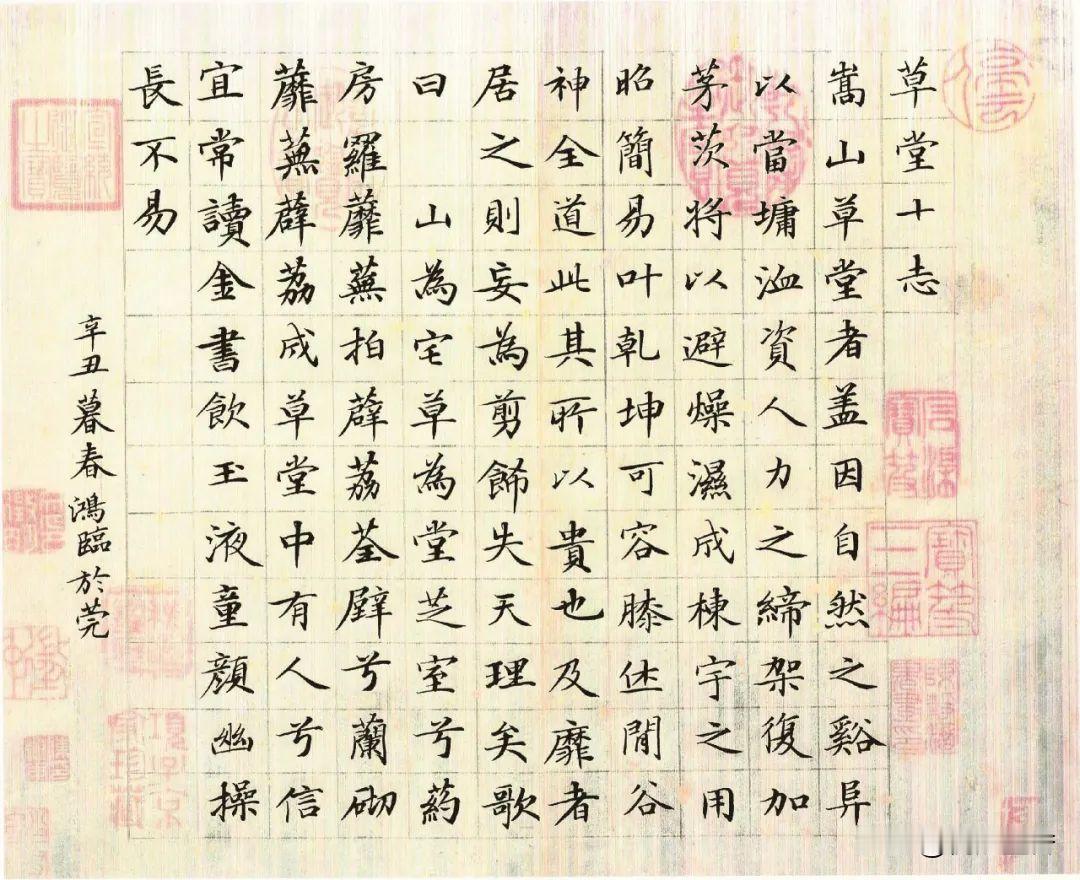 草堂十志
嵩山草堂者盖因自然之谿阜
以當墉洫資人力之締架復加
茅茨将以避燥濕成棟宇之用
昭簡易叶乹坤可容膝休閒谷
神全道此其所以貴也及靡者
居之則妄為剪餙失天理矣歌
曰 山為宅草為堂芝室兮葯
房羅蘼蕪拍薜荔荃壁兮蘭砌
蘼蕪薜荔成草堂中有人兮信
宜常讀金書飲玉液童顏幽操
長不易
辛丑暮春鴻臨於莞